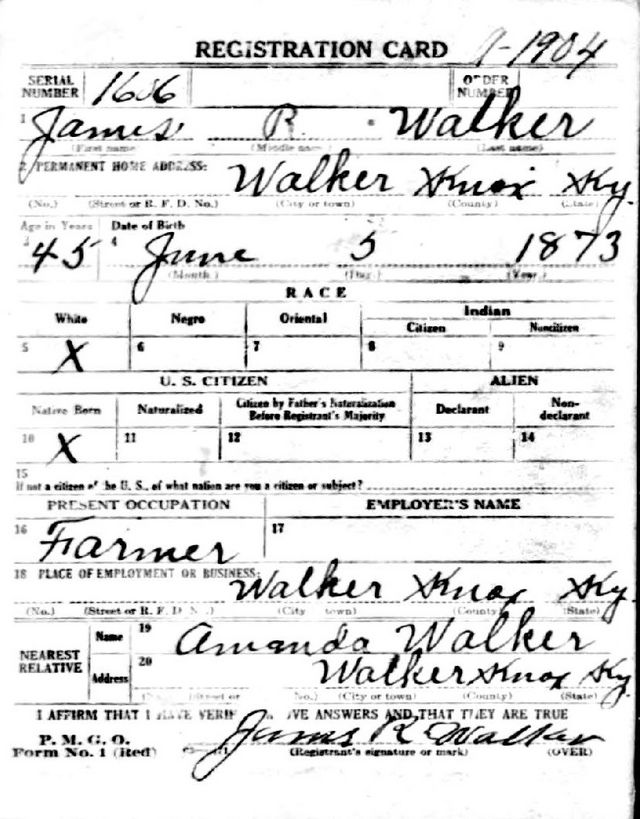 REGISTRATION CARD 9-1904
SERIAL NUMBER 1606 ORDER NUMBER
1 James R. Walker
(First name) (Middle name) (Last name)
2 PERMANENT HOME ADDRESS: Walker Knox Ky.
(No.) (Street or R. F. D. No.) (City or town) (County) (State)
Age in Years Date of Birth
3 45 4 June 5 1873
(Month.) (Day.) (Year.)
RACE
White Negro Oriental Indian
Citizen Noncitizen
5 X 6 7 8 9
U. S. CITIZEN ALIEN
Native Born Naturalized Citizen by Father's Naturalization Before Registrant's Majority Declarant Non-declarant
10 X 11 12 13 14
15
If not a citizen of the U. S., of what nation are you a citizen or subject?
PRESENT OCCUPATION EMPLOYER'S NAME
16 Farmer 17
18 PLACE OF EMPLOYMENT OR BUSINESS: Walker Knox Ky.
(No.) (Street or R. F. D. No.) (City or town) (County) (State)
NEAREST RELATIVE Name 19 Amanda Walker
Address 20 Walker Knox Ky
(No.) (City or town) (County) (State)
I AFFIRM THAT I HAVE VERIF IVE ANSWERS AND THAT THEY ARE TRUE
P. M. G. O.
Form No. 1 (Red) James R Walker
(Registrant's signature or mark) (OVER)